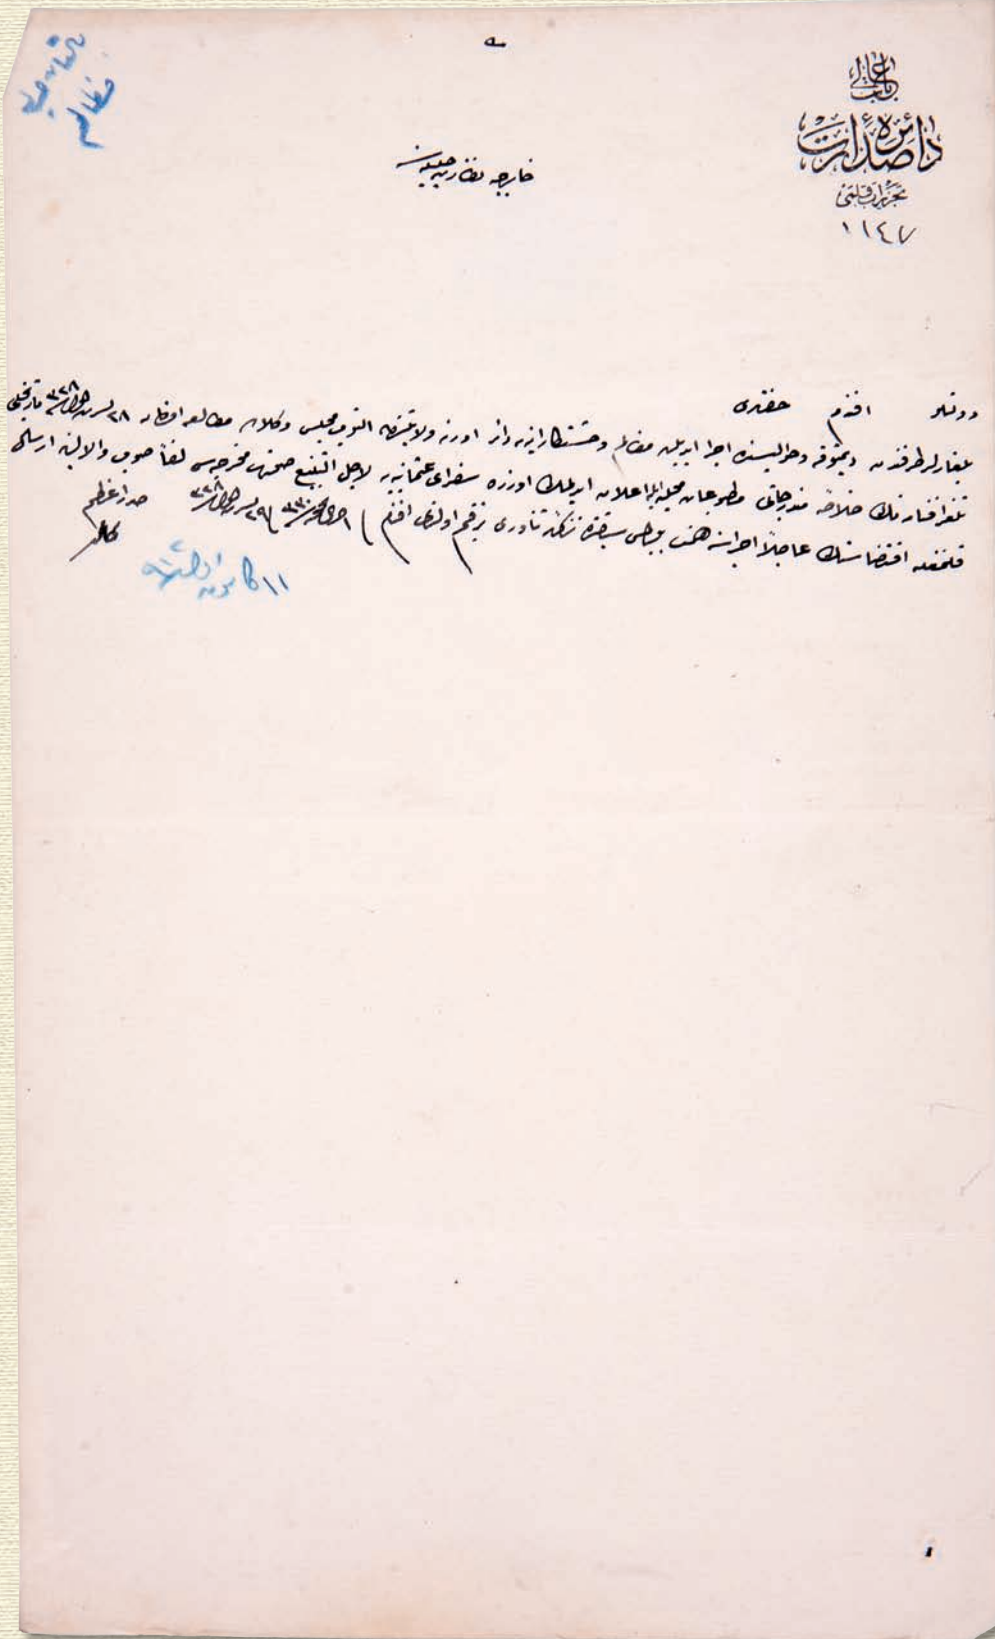 باب عالی
دائرهٔ صدارت
تحریرات قلمی
١١٤٧
خارجیه نظارت جلیله‌سنه
دولتلو افندم حضرتلری
بلغارلر طرفندن دیمتوقه و حوالیسنده اجرا ایدیلن مظالم و وحشتکارانه‌یه دائر ادرنه ولایتندن النوب مجلس وکلاده مطالعه اولنان ٢٨ تشرین ثانی سنه ٣٢٨ تاریخلی
تلغرافنامه‌نك خلاصهٔ مندرجاتی مطبوعات محلیه ایله اعلان ایدیلمك اوزره سفرای عثمانیه‌یه لاجل التبلیغ صورت مخرجه‌سی لفاً صوب والالرینه ارسال
قلنمغله اقتضاسنك عاجلاً اجراسنه همت بیورلمسی سیاقنده تذکرهٔ ثناوری ترقیم اولندی افندم
سنه ٣٣٠
٢٩
سنه ٣٢٨
صدر اعظم
كامل
١١ كانون اول